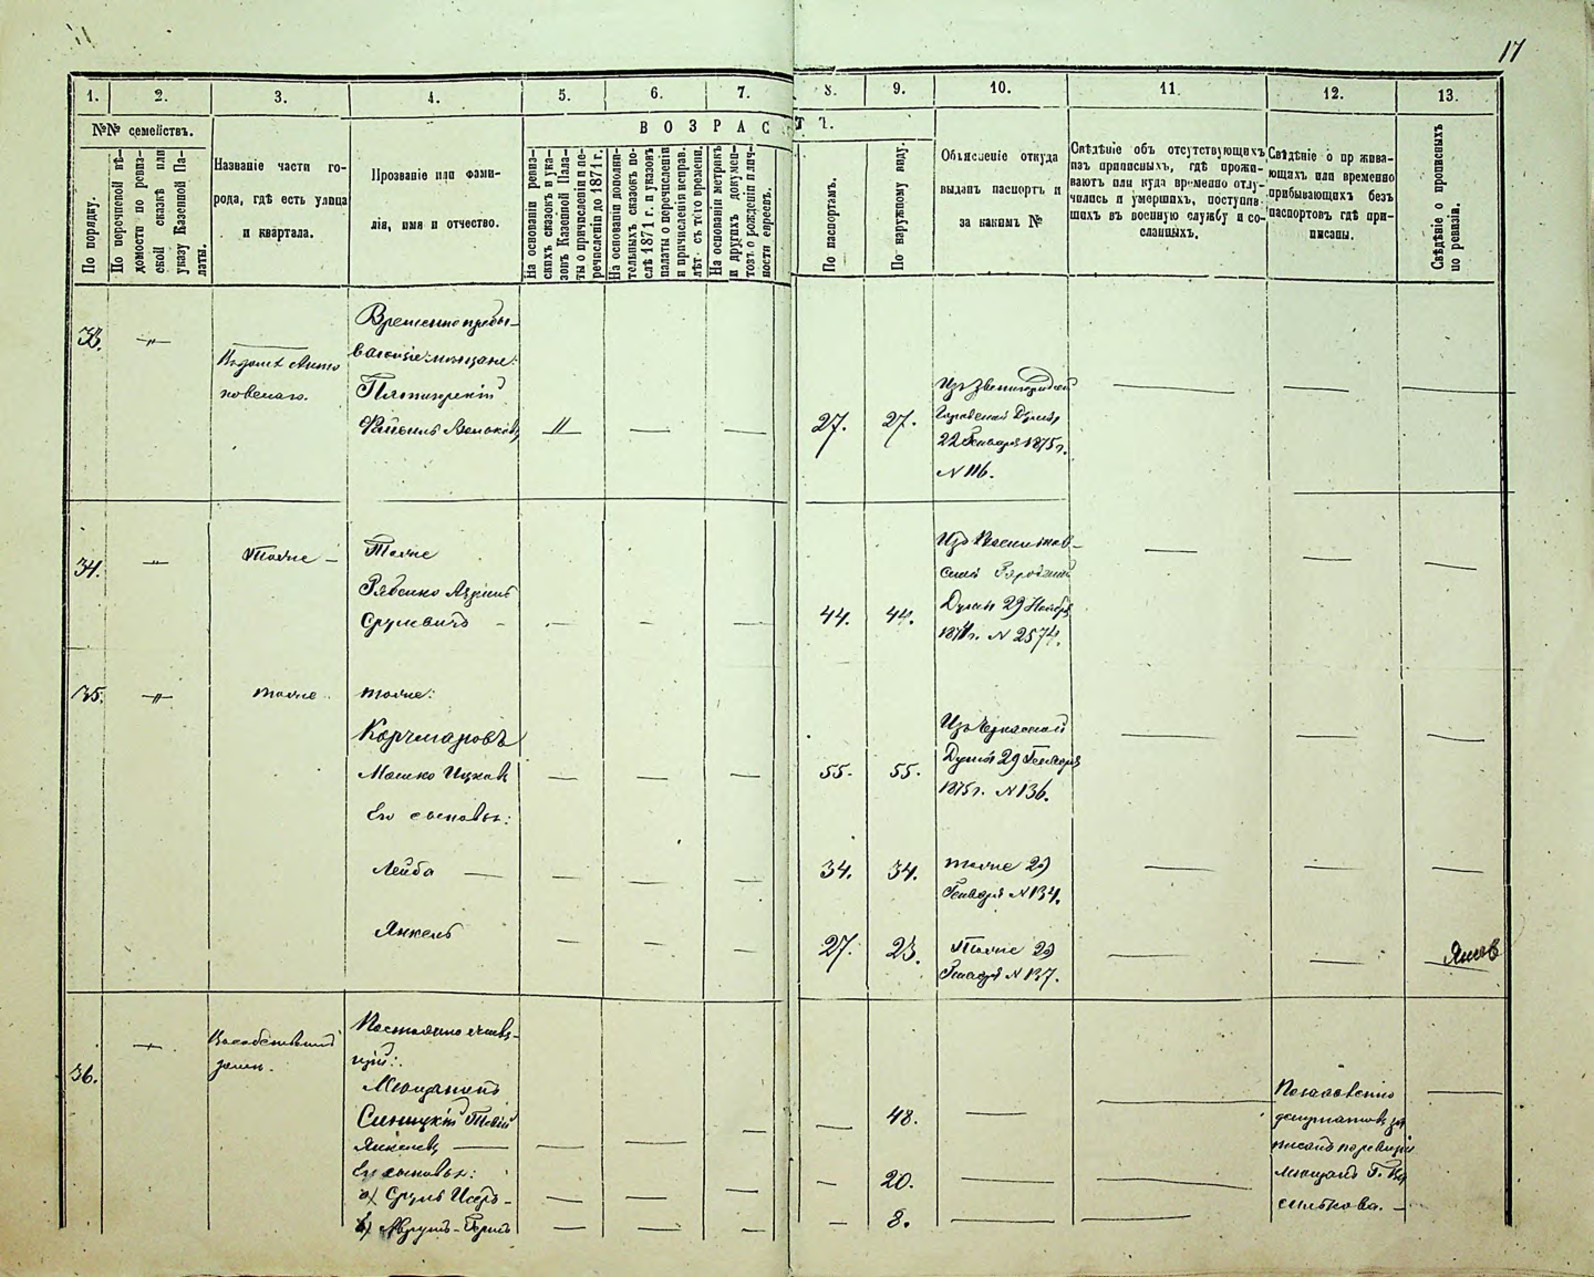 17
1. 2. 3. 4. 5. 6. 7. 8. 9. 10. 11. 12. 13.
№№ семействъ.
В О З Р А С Т Ъ.
По порядку.
По перечневой вѣ-
домости по ревиз-
ской сказкѣ или
указу Казенной Па-
латы.
Названіе части го-
рода, гдѣ есть улица
и квартала.
Прозваніе или фами-
лія, имя и отчество.
На основаніи ревиз-
скихъ сказокъ и ука-
зовъ Казенной Пала-
ты о причисленіи и пе-
речисленіи до 1871 г.
На основаніи дополни-
тельныхъ сказокъ по-
слѣ 1871 г. и указовъ
палаты о перечисленіи
и причисленіи исправ.
лѣт. съ того времени.
На основаніи метрикъ
и другихъ докумен-
товъ о рожденіи лич-
ности евреевъ.
По паспортамъ.
По наружному виду.
Объясненіе откуда
выданъ паспортъ и
за какимъ №
Свѣдѣніе объ отсутствующихъ
изъ приписныхъ, гдѣ прожи-
ваютъ или куда временно отлу-
чились и умершихъ, поступив-
шихъ въ военную службу и со-
сланныхъ.
Свѣдѣніе о прожива-
ющихъ или временно
прибывающихъ безъ
паспортовъ гдѣ при-
писаны.
Свѣдѣніе о прописныхъ
по ревизіи.
33. —"—
Временно пребы-
вающіе мѣщане:
Пятигорскій
27. 27.
Изъ Звенигородской
Городской Думы,
22 Генваря 1875 г.
N 116.
34. —"— Тоже — Тоже
Рябенко
Срулевичъ —
44. 44.
Городской
Думы 29 Ноября
1874 г. N 2574.
35. —"— тоже тоже:
Корчмаровъ
Мошко Ицковъ — — — 55. 55.
Изъ Черкасской
Думы 29 Генваря
1875 г. N 136.
Его сыновья:
Лейба — — — — 34. 34. тоже 29
Генваря N 134.
Янкель — — — 27. 23. Тоже 29
Генваря N 137.
36. —"— Въ собственномъ
домѣ.
Постоянно живу-
щій:
Мѣщанинъ
Синицкій Товій
Янкелевъ — — — — — 48. — —
Его сыновья:
а) Сруль Исеръ — — — — — 20. — —
б) Аврумъ-Гершъ — — — — 8. — —
депутатовъ за-
писанъ по ревизіи
мѣщанъ Г. Ва-
силькова. —